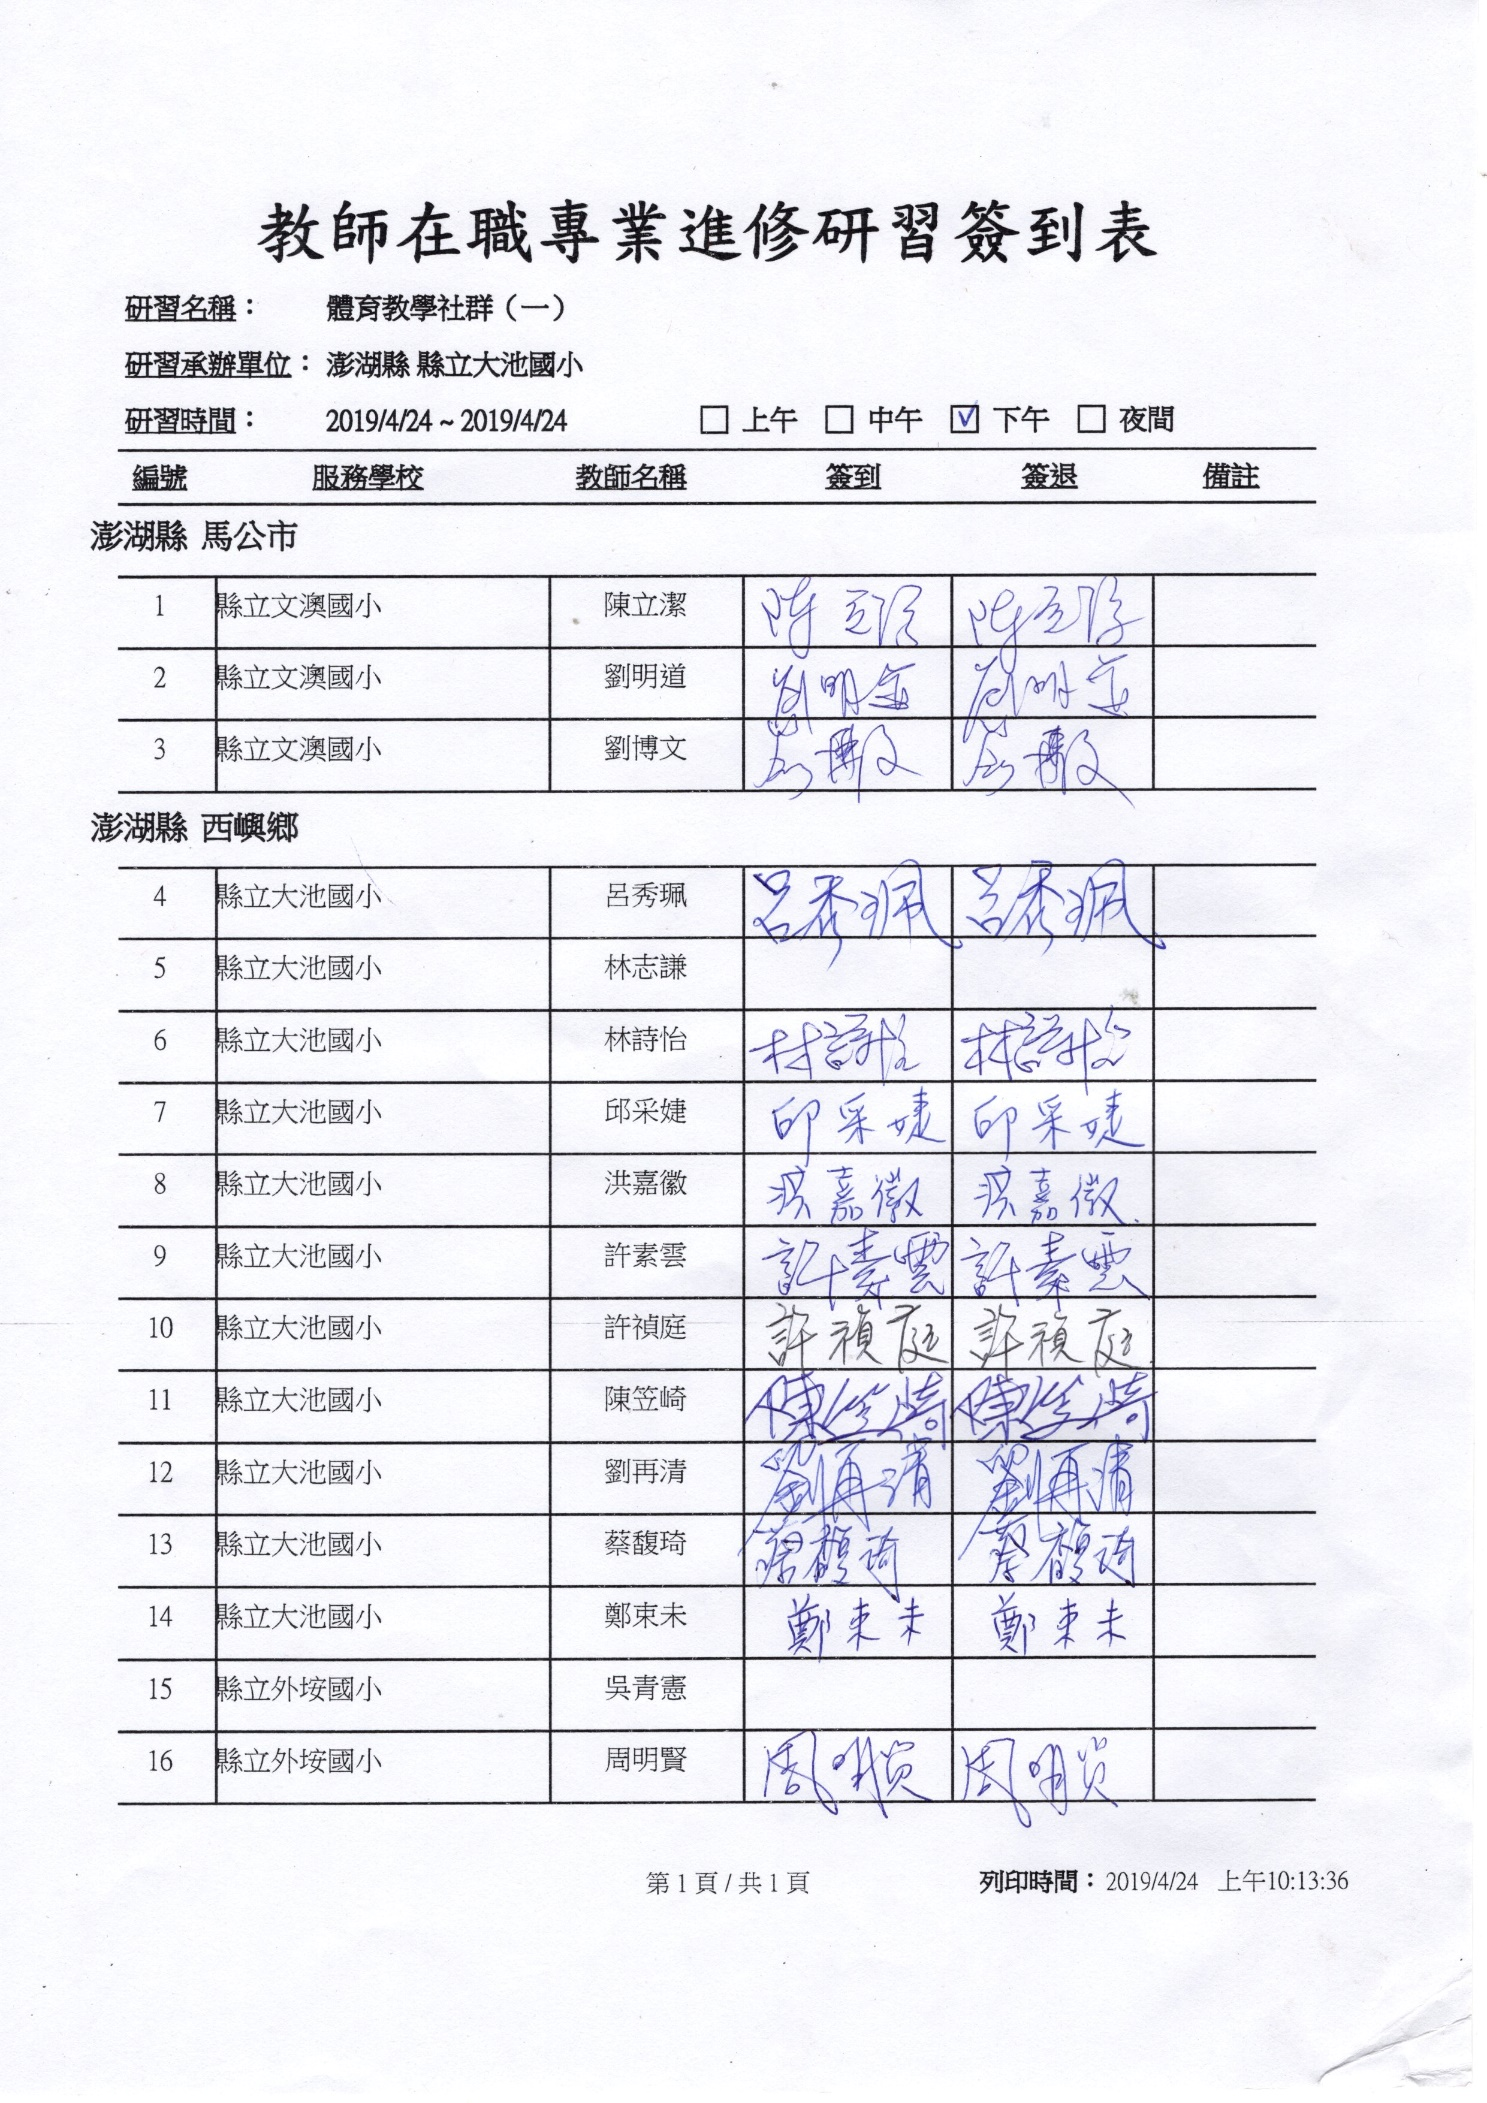 教師在職專業進修研習簽到表
研習名稱： 體育教學社群（一）
研習承辦單位： 澎湖縣 縣立大池國小
研習時間： 2019/4/24 ~ 2019/4/24 □ 上午 □ 中午 ☑ 下午 □ 夜間
編號 服務學校 教師名稱 簽到 簽退 備註
澎湖縣 馬公市
1 縣立文澳國小 陳立潔 陈立洁 陈立洁
2 縣立文澳國小 劉明道 劉明道 劉明道
3 縣立文澳國小 劉博文 劉博文 劉博文
澎湖縣 西嶼鄉
4 縣立大池國小 呂秀珮 呂秀珮 呂秀珮
5 縣立大池國小 林志謙
6 縣立大池國小 林詩怡 林詩怡 林詩怡
7 縣立大池國小 邱采婕 邱采婕 邱采婕
8 縣立大池國小 洪嘉徽 洪嘉徽 洪嘉徽
9 縣立大池國小 許素雲 許素雲 許素雲
10 縣立大池國小 許禎庭 許禎庭 許禎庭
11 縣立大池國小 陳笠崎 陳笠崎 陳笠崎
12 縣立大池國小 劉再清 劉再清 劉再清
13 縣立大池國小 蔡馥琦 蔡馥琦 蔡馥琦
14 縣立大池國小 鄭束未 鄭束未 鄭束未
15 縣立外垵國小 吳青憲
16 縣立外垵國小 周明賢 周明賢 周明賢
第 1 頁 / 共 1 頁 列印時間： 2019/4/24 上午10:13:36